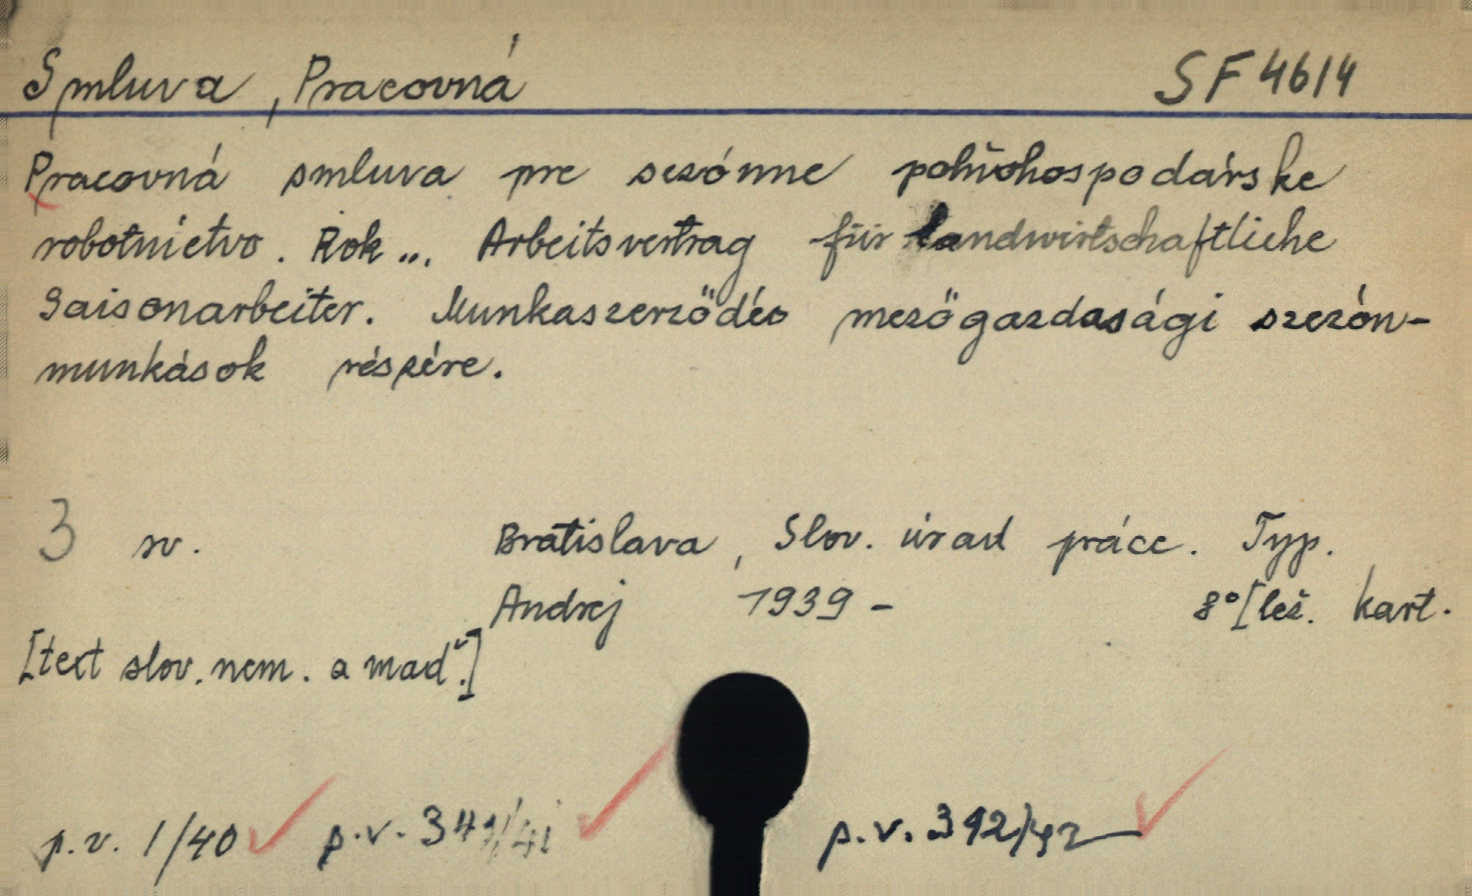 Smluva, Pracovná SF 4614
Pracovná smluva pre sezónne poľnohospodárske
robotníctvo. Rok ... Arbeitsvertrag für landwirtschaftliche
Saisonarbeiter. Munkaszerződés mezőgazdasági szezón-
munkások részére.
3 sv. Bratislava, Slov. úrad práce. Typ.
Andrej 1939 - 8° [leš. kart.
[text slov. nem. a maď.]
p.v. 1/40 p.v. 341/41 p.v. 392/42